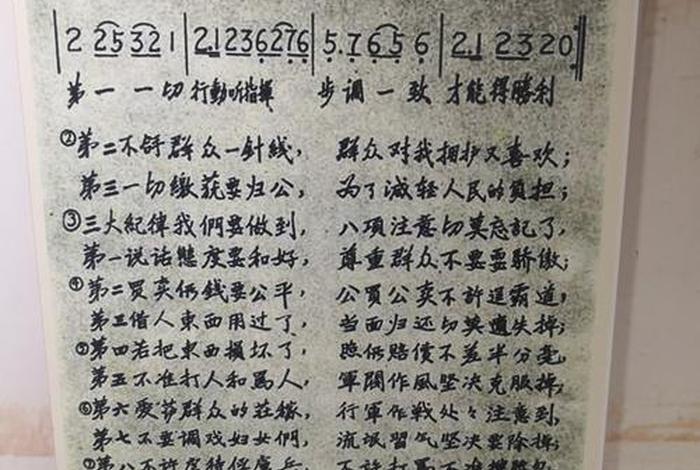 2 25 321 | 2.1236276 | 5.7 6 5 6 | 2.1 23 20
第一 一切行動听指揮 步调一致 才能得勝利
②第二不 群众一針线, 群众对我拥护又喜欢;
第三一切缴获要归公, 为了减轻人民的負担;
③三大紀律我們要做到, 八項注意切莫忘記了,
第一说话態度要和好, 尊重群众不要耍骄傲;
④第二買卖價錢要公平, 公買公卖不許逞霸道,
第三借人東西用过了, 当面归还切莫遺失掉;
⑤第四若把東西損坏了, 照價賠償不差半分毫,
第五不准打人和罵人, 軍閥作風坚决克服掉;
⑥第六愛 群众的莊稼, 行軍作戦处々注意到,
第七不要调戏妇女們, 流氓習气坚决要除掉;
⑦第八不許虐待俘虜兵,